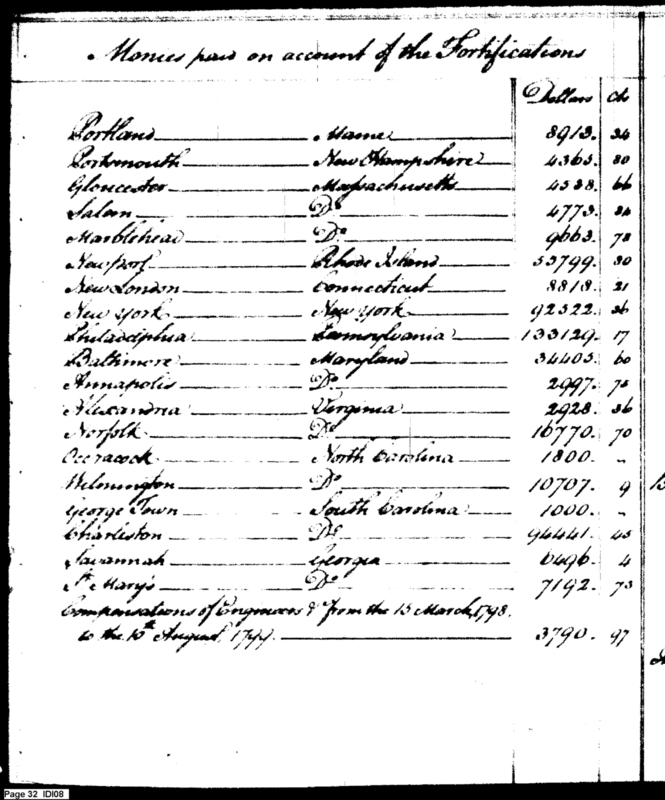 Monies paid on account of the Fortifications
Dollars Cts
Portland Maine 8913. 34
Portsmouth New Hampshire 4363. 80
Gloucester Massachusetts 4528. 66
Salem Do 4773. 34
Marblehead Do 9663. 78
Newport Rhode Island 53799. 80
New London Connecticut 8818. 21
New York New York 92322. 36
Philadelphia Pennsylvania 133129. 17
Baltimore Maryland 34403. 60
Annapolis Do 2997. 75
Alexandria Virginia 2928. 36
Norfolk Do 16770. 70
Occracock North Carolina 1800. -
Wilmington Do 10707. 9
George Town South Carolina 1000. -
Charleston Do 94441. 45
Savannah Georgia 6496. 4
St Mary's Do 7192. 73
Compensations of Engineers & from the 15 March, 1798.
to the 10th August, 1799. 3790. 97
Page 32 IDI08